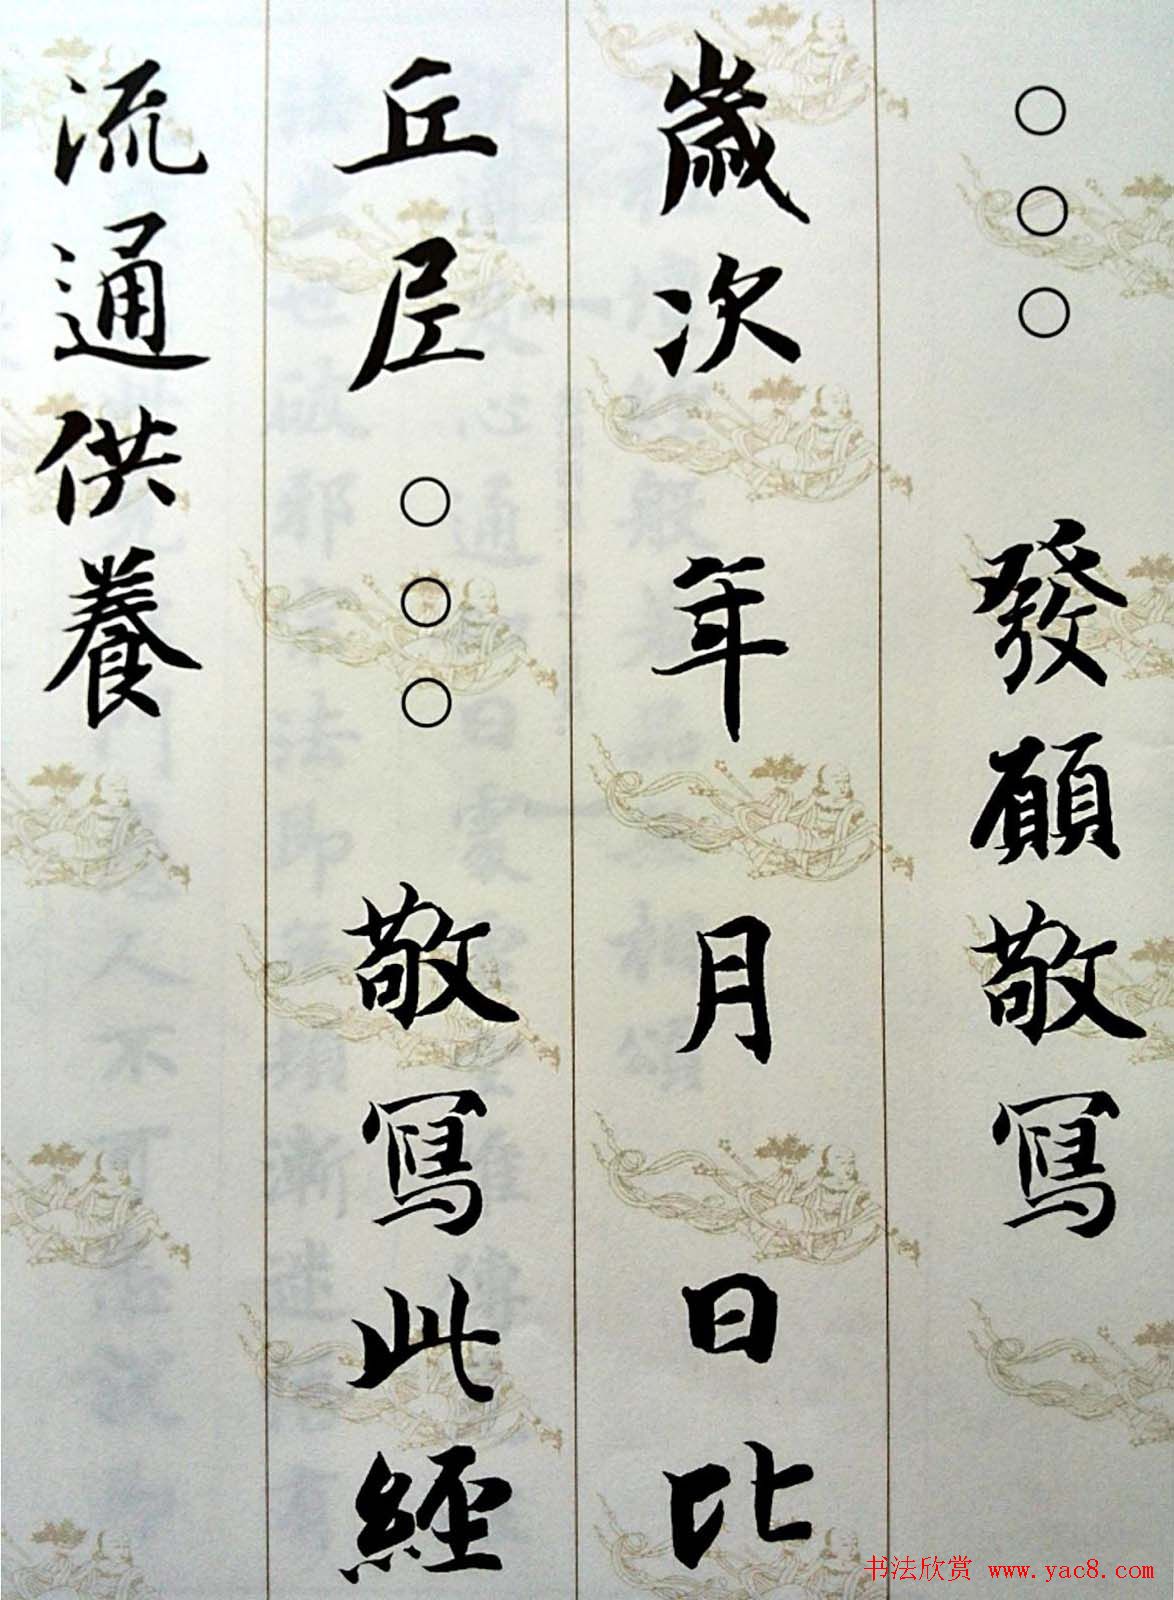 ○○○ 發願敬寫
歲次 年 月 日比
丘尼○○○ 敬寫此經
流通供養
书法欣赏 www.yac8.com